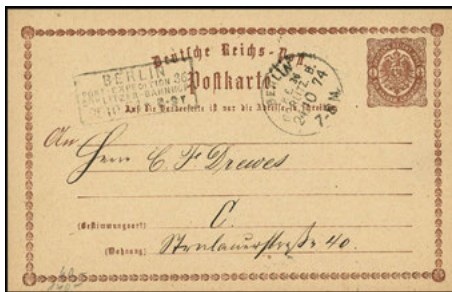 Deutsche Reichs-Post.
Postkarte
BERLIN
POST-EXPEDITION 36
GÖRLITZER-BAHNHOF
BERLIN
24 10 74
7-8 N.
Auf die Vorderseite ist nur die Adresse zu schreiben
An
Herrn C. F. Drewes
(Bestimmungsort) C.
(Wohnung) Stralauerstraße 40.